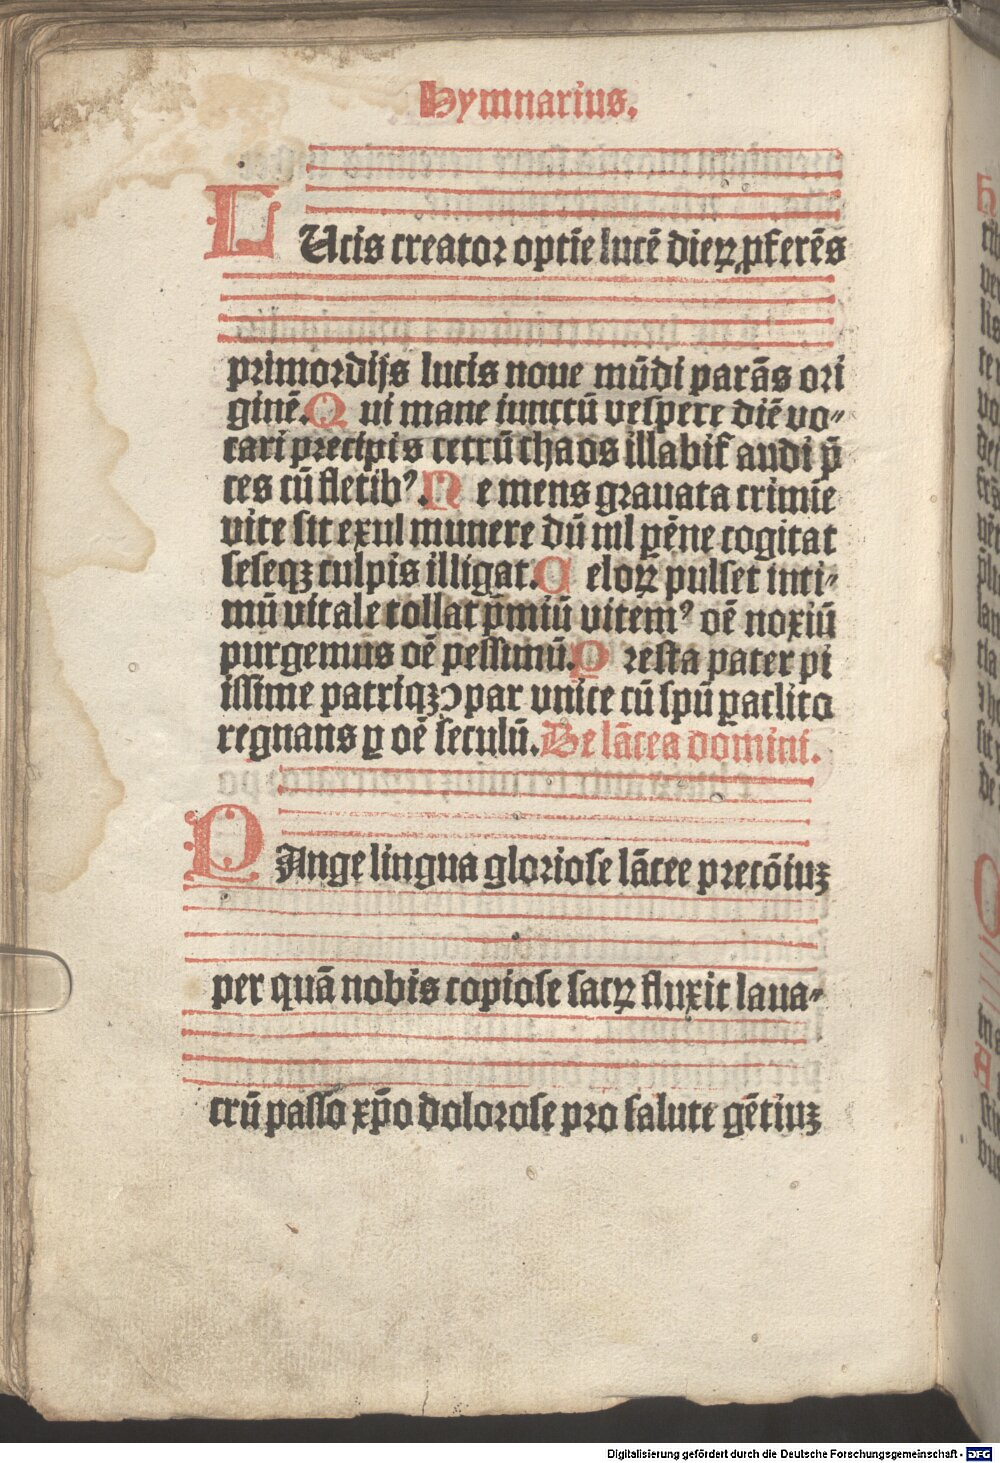 Hymnarius.
LUcis creator optīe lucē dieꝝ ꝓferēs
primordijs lucis noue mūdi parās ori
ginē. Q ui mane iunctū vespere diē vo⸗
cari precipis tetrū chaos illabit̄ audi p̄
ces cū fletibꝰ. N e mens grauata crimīe
vite sit exul munere dū nil ꝑēne cogitat
seseqꝫ culpis illigat. C eloꝝ pulset inti⸗
mū vitale tollat p̄miū vitemꝰ oē noxiū
purgemus oē pessimū. P resta pater pi
issime patriqꝫ ↄpar vnice cū spū ꝑaclito
regnans ꝑ oē seculū. De lācea domini.
PAnge lingua gloriose lācee precōiuꝫ
per quā nobis copiose sacꝝ fluxit laua⸗
crū passo xp̄o dolorose pro salute gētiuꝫ
Digitalisierung gefördert durch die Deutsche Forschungsgemeinschaft - DFG